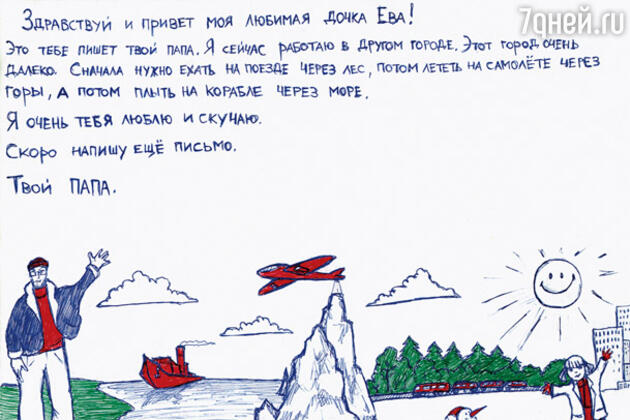 7дней.ru
Здравствуй и привет моя любимая дочка Ева!
Это тебе пишет твой папа. Я сейчас работаю в другом городе. Этот город очень
далеко. Сначала нужно ехать на поезде через лес, потом лететь на самолёте через
горы, а потом плыть на корабле через море.
Я очень тебя люблю и скучаю.
Скоро напишу ещё письмо.
Твой папа.